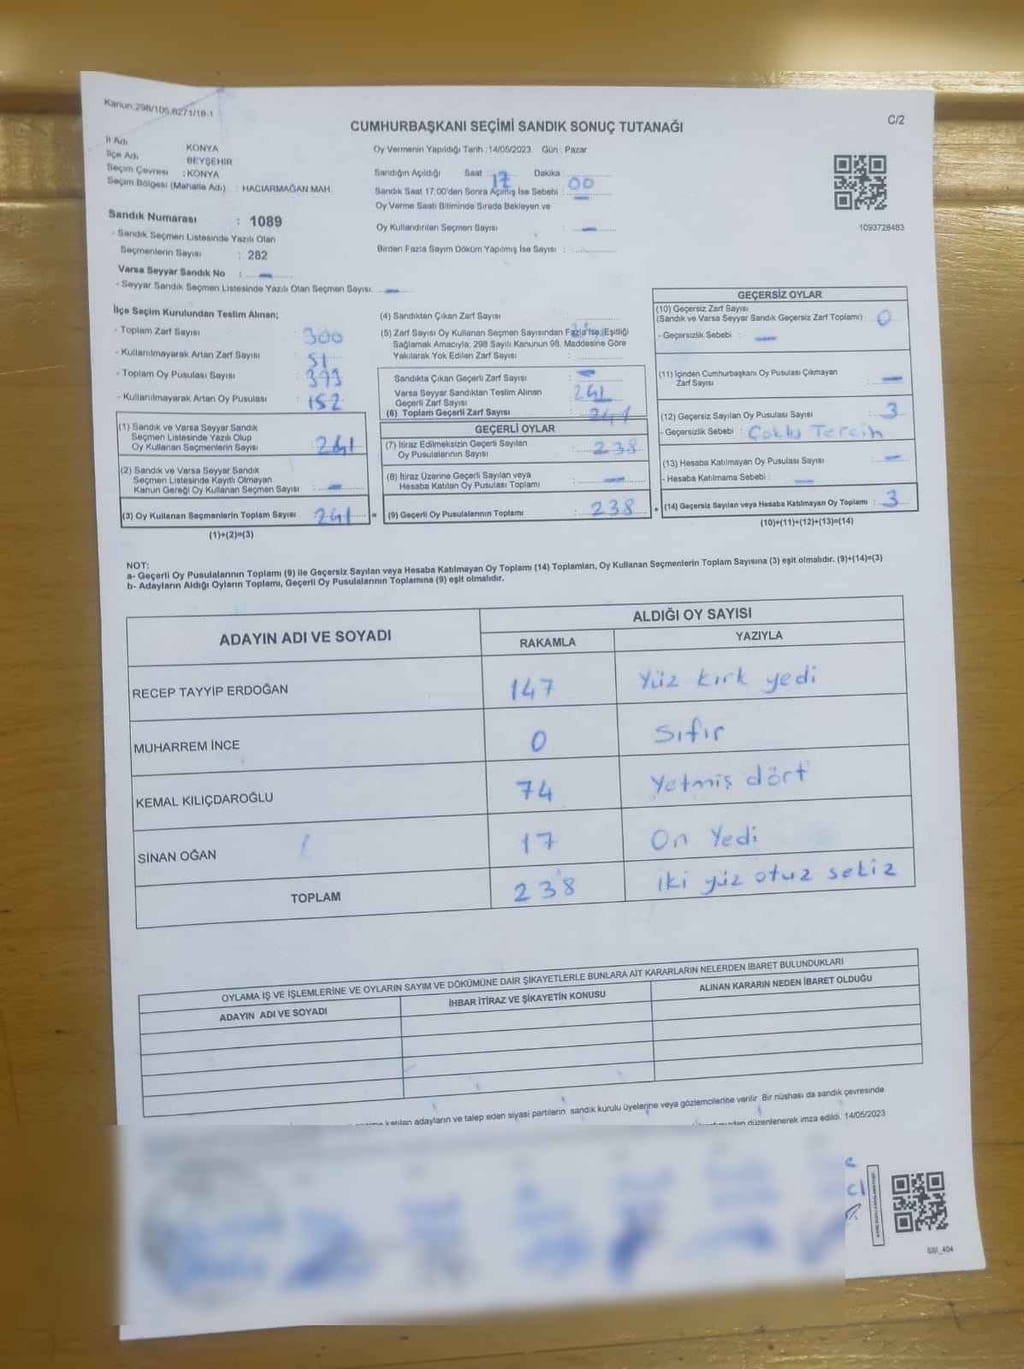 Kanun:298/105,6271/18-1
C/2
CUMHURBAŞKANI SEÇİMİ SANDIK SONUÇ TUTANAĞI
İl Adı : KONYA
İlçe Adı : BEYŞEHİR
Seçim Çevresi : KONYA
Seçim Bölgesi (Mahalle Adı) : HACIARMAĞAN MAH.
Sandık Numarası : 1089
- Sandık Seçmen Listesinde Yazılı Olan
Seçmenlerin Sayısı : 282
Varsa Seyyar Sandık No : -
- Seyyar Sandık Seçmen Listesinde Yazılı Olan Seçmen Sayısı: -
Oy Vermenin Yapıldığı Tarih :14/05/2023 Gün : Pazar
Sandığın Açıldığı Saat : 17 Dakika 00
Sandık Saat 17.00'den Sonra Açılmış İse Sebebi : -
Oy Verme Saati Bitiminde Sırada Bekleyen ve
Oy Kullandırılan Seçmen Sayısı : -
Birden Fazla Sayım Döküm Yapılmış İse Sayısı :
1093728483
İlçe Seçim Kurulundan Teslim Alınan;
- Toplam Zarf Sayısı : 300
- Kullanılmayarak Artan Zarf Sayısı : 51
- Toplam Oy Pusulası Sayısı : 393
- Kullanılmayarak Artan Oy Pusulası : 152
(1) Sandık ve Varsa Seyyar Sandık
Seçmen Listesinde Yazılı Olup
Oy Kullanan Seçmenlerin Sayısı : 241
(2) Sandık ve Varsa Seyyar Sandık
Seçmen Listesinde Kayıtlı Olmayan
Kanun Gereği Oy Kullanan Seçmen Sayısı : -
(3) Oy Kullanan Seçmenlerin Toplam Sayısı : 241
(1)+(2)=(3)
(4) Sandıktan Çıkan Zarf Sayısı :
(5) Zarf Sayısı Oy Kullanan Seçmen Sayısından Fazla İse, Eşitliği
Sağlamak Amacıyla; 298 Sayılı Kanunun 98. Maddesine Göre
Yakılarak Yok Edilen Zarf Sayısı :
Sandıkta Çıkan Geçerli Zarf Sayısı : -
Varsa Seyyar Sandıktan Teslim Alınan
Geçerli Zarf Sayısı : 241
(6) Toplam Geçerli Zarf Sayısı : 241
GEÇERLİ OYLAR
(7) İtiraz Edilmeksizin Geçerli Sayılan
Oy Pusulalarının Sayısı : 238
(8) İtiraz Üzerine Geçerli Sayılan veya
Hesaba Katılan Oy Pusulası Toplamı : -
= (9) Geçerli Oy Pusulalarının Toplamı : 238
GEÇERSİZ OYLAR
(10) Geçersiz Zarf Sayısı
(Sandık ve Varsa Seyyar Sandık Geçersiz Zarf Toplamı) : 0
- Geçersizlik Sebebi : -
(11) İçinden Cumhurbaşkanı Oy Pusulası Çıkmayan
Zarf Sayısı : -
(12) Geçersiz Sayılan Oy Pusulası Sayısı : 3
- Geçersizlik Sebebi : Çoklu Tercih
(13) Hesaba Katılmayan Oy Pusulası Sayısı : -
- Hesaba Katılmama Sebebi : -
+ (14) Geçersiz Sayılan veya Hesaba Katılmayan Oy Toplamı : 3
(10)+(11)+(12)+(13)=(14)
NOT:
a- Geçerli Oy Pusulalarının Toplamı (9) ile Geçersiz Sayılan veya Hesaba Katılmayan Oy Toplamı (14) Toplamları, Oy Kullanan Seçmenlerin Toplam Sayısına (3) eşit olmalıdır. (9)+(14)=(3)
b- Adayların Aldığı Oyların Toplamı, Geçerli Oy Pusulalarının Toplamına (9) eşit olmalıdır.
ADAYIN ADI VE SOYADI
ALDIĞI OY SAYISI
RAKAMLA YAZIYLA
RECEP TAYYİP ERDOĞAN 147 Yüz kırk yedi
MUHARREM İNCE 0 Sıfır
KEMAL KILIÇDAROĞLU 74 Yetmiş dört
SİNAN OĞAN 17 On Yedi
TOPLAM 238 iki yüz otuz sekiz
OYLAMA İŞ VE İŞLEMLERİNE VE OYLARIN SAYIM VE DÖKÜMÜNE DAİR ŞİKAYETLERLE BUNLARA AİT KARARLARIN NELERDEN İBARET BULUNDUKLARI
ADAYIN ADI VE SOYADI İHBAR İTİRAZ VE ŞİKAYETİN KONUSU ALINAN KARARIN NEDEN İBARET OLDUĞU
katılan adayların ve talep eden siyasi partilerin sandık kurulu üyelerine veya gözlemcilerine verilir. Bir nüshası da sandık çevresinde
düzenlenerek imza edildi. 14/05/2023